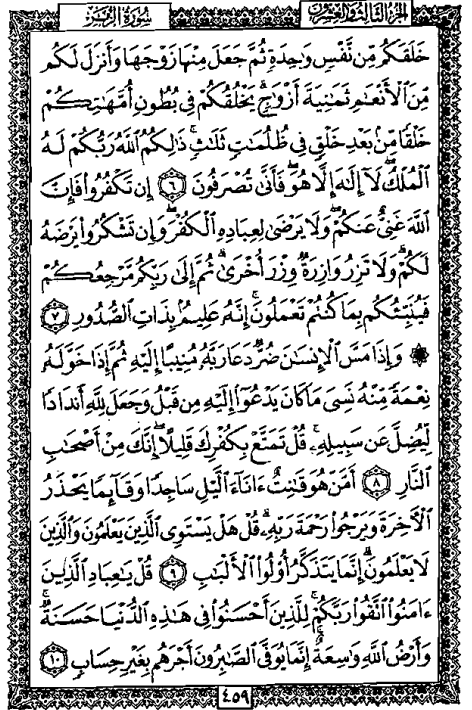 سورة الزمر
الجزء الثالث والعشرون
خَلَقَكُم مِّن نَّفْسٍ وَٰحِدَةٍ ثُمَّ جَعَلَ مِنْهَا زَوْجَهَا وَأَنزَلَ لَكُم
مِّنَ ٱلْأَنْعَٰمِ ثَمَٰنِيَةَ أَزْوَٰجٍ ۚ يَخْلُقُكُمْ فِى بُطُونِ أُمَّهَٰتِكُمْ
خَلْقًا مِّنۢ بَعْدِ خَلْقٍ فِى ظُلُمَٰتٍ ثَلَٰثٍ ۚ ذَٰلِكُمُ ٱللَّهُ رَبُّكُمْ لَهُ
ٱلْمُلْكُ ۖ لَآ إِلَٰهَ إِلَّا هُوَ ۖ فَأَنَّىٰ تُصْرَفُونَ ٦ إِن تَكْفُرُوا۟ فَإِنَّ
ٱللَّهَ غَنِىٌّ عَنكُمْ ۖ وَلَا يَرْضَىٰ لِعِبَادِهِ ٱلْكُفْرَ ۖ وَإِن تَشْكُرُوا۟ يَرْضَهُ
لَكُمْ ۗ وَلَا تَزِرُ وَازِرَةٌ وِزْرَ أُخْرَىٰ ۗ ثُمَّ إِلَىٰ رَبِّكُم مَّرْجِعُكُمْ
فَيُنَبِّئُكُم بِمَا كُنتُمْ تَعْمَلُونَ ۚ إِنَّهُۥ عَلِيمٌۢ بِذَاتِ ٱلصُّدُورِ ٧
۞ وَإِذَا مَسَّ ٱلْإِنسَٰنَ ضُرٌّ دَعَا رَبَّهُۥ مُنِيبًا إِلَيْهِ ثُمَّ إِذَا خَوَّلَهُۥ
نِعْمَةً مِّنْهُ نَسِىَ مَا كَانَ يَدْعُوٓا۟ إِلَيْهِ مِن قَبْلُ وَجَعَلَ لِلَّهِ أَندَادًا
لِّيُضِلَّ عَن سَبِيلِهِۦ ۚ قُلْ تَمَتَّعْ بِكُفْرِكَ قَلِيلًا ۖ إِنَّكَ مِنْ أَصْحَٰبِ
ٱلنَّارِ ٨ أَمَّنْ هُوَ قَٰنِتٌ ءَانَآءَ ٱلَّيْلِ سَاجِدًا وَقَآئِمًا يَحْذَرُ
ٱلْأَخِرَةَ وَيَرْجُوا۟ رَحْمَةَ رَبِّهِۦ ۗ قُلْ هَلْ يَسْتَوِى ٱلَّذِينَ يَعْلَمُونَ وَٱلَّذِينَ
لَا يَعْلَمُونَ ۗ إِنَّمَا يَتَذَكَّرُ أُو۟لُوا۟ ٱلْأَلْبَٰبِ ٩ قُلْ يَٰعِبَادِ ٱلَّذِينَ
ءَامَنُوا۟ ٱتَّقُوا۟ رَبَّكُمْ ۚ لِلَّذِينَ أَحْسَنُوا۟ فِى هَٰذِهِ ٱلدُّنْيَا حَسَنَةٌ ۗ
وَأَرْضُ ٱللَّهِ وَٰسِعَةٌ ۗ إِنَّمَا يُوَفَّى ٱلصَّٰبِرُونَ أَجْرَهُم بِغَيْرِ حِسَابٍ ١٠
٤٥٩